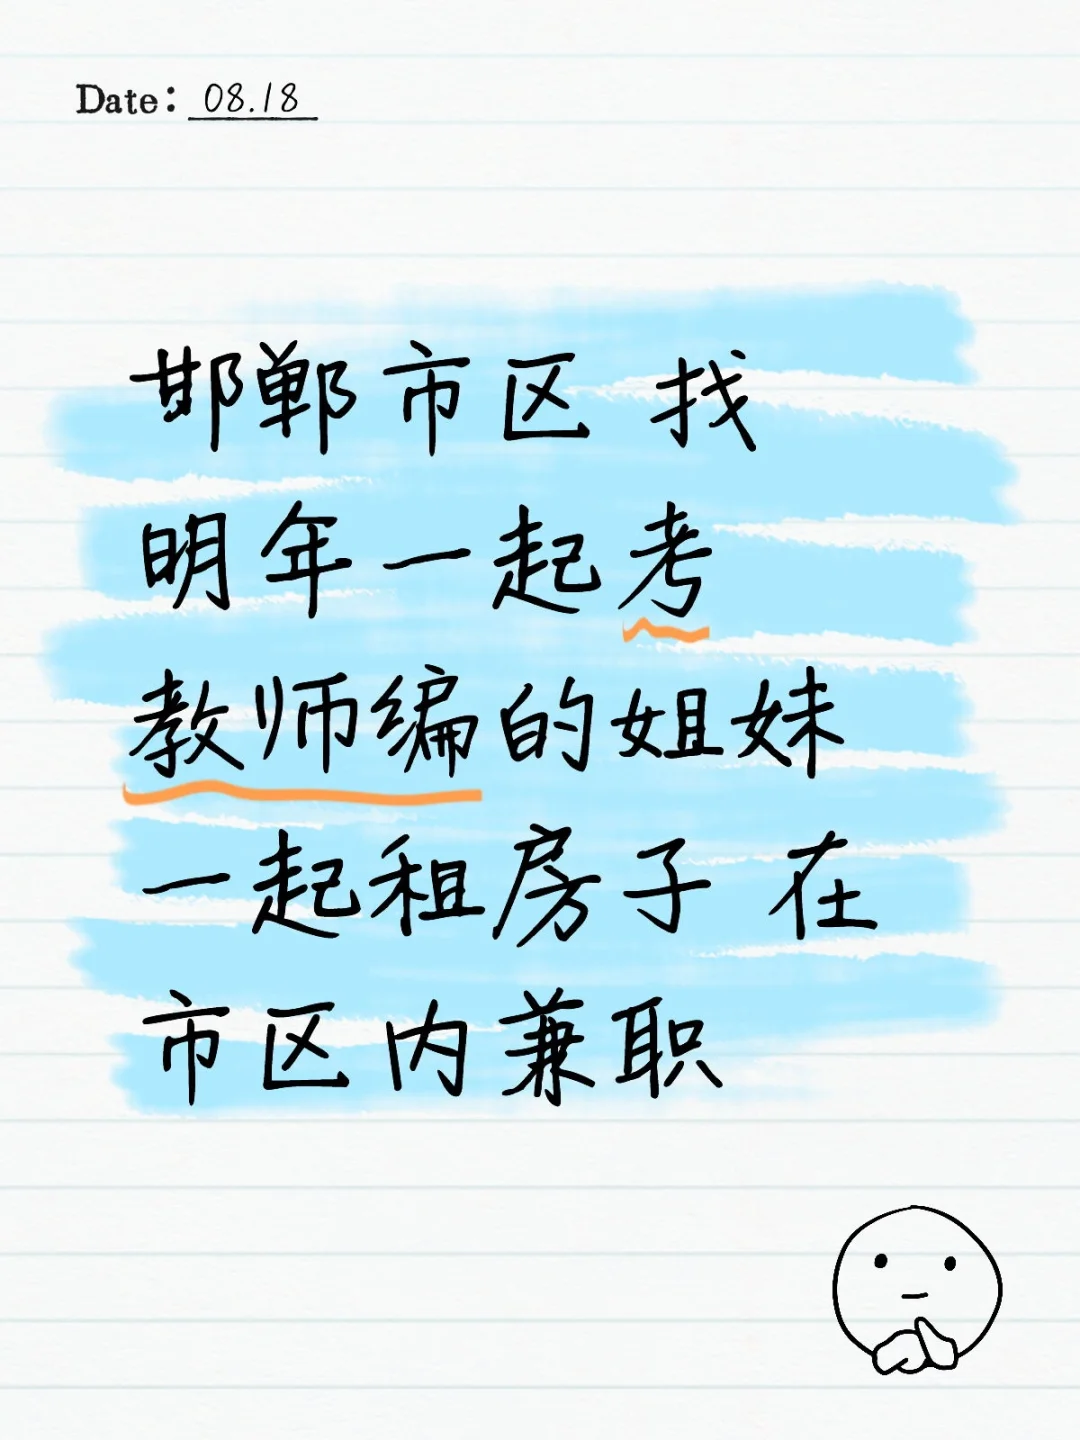 Date: 08.18
邯郸市区 找
明年一起考
教师编的姐妹
一起租房子 在
市区内兼职